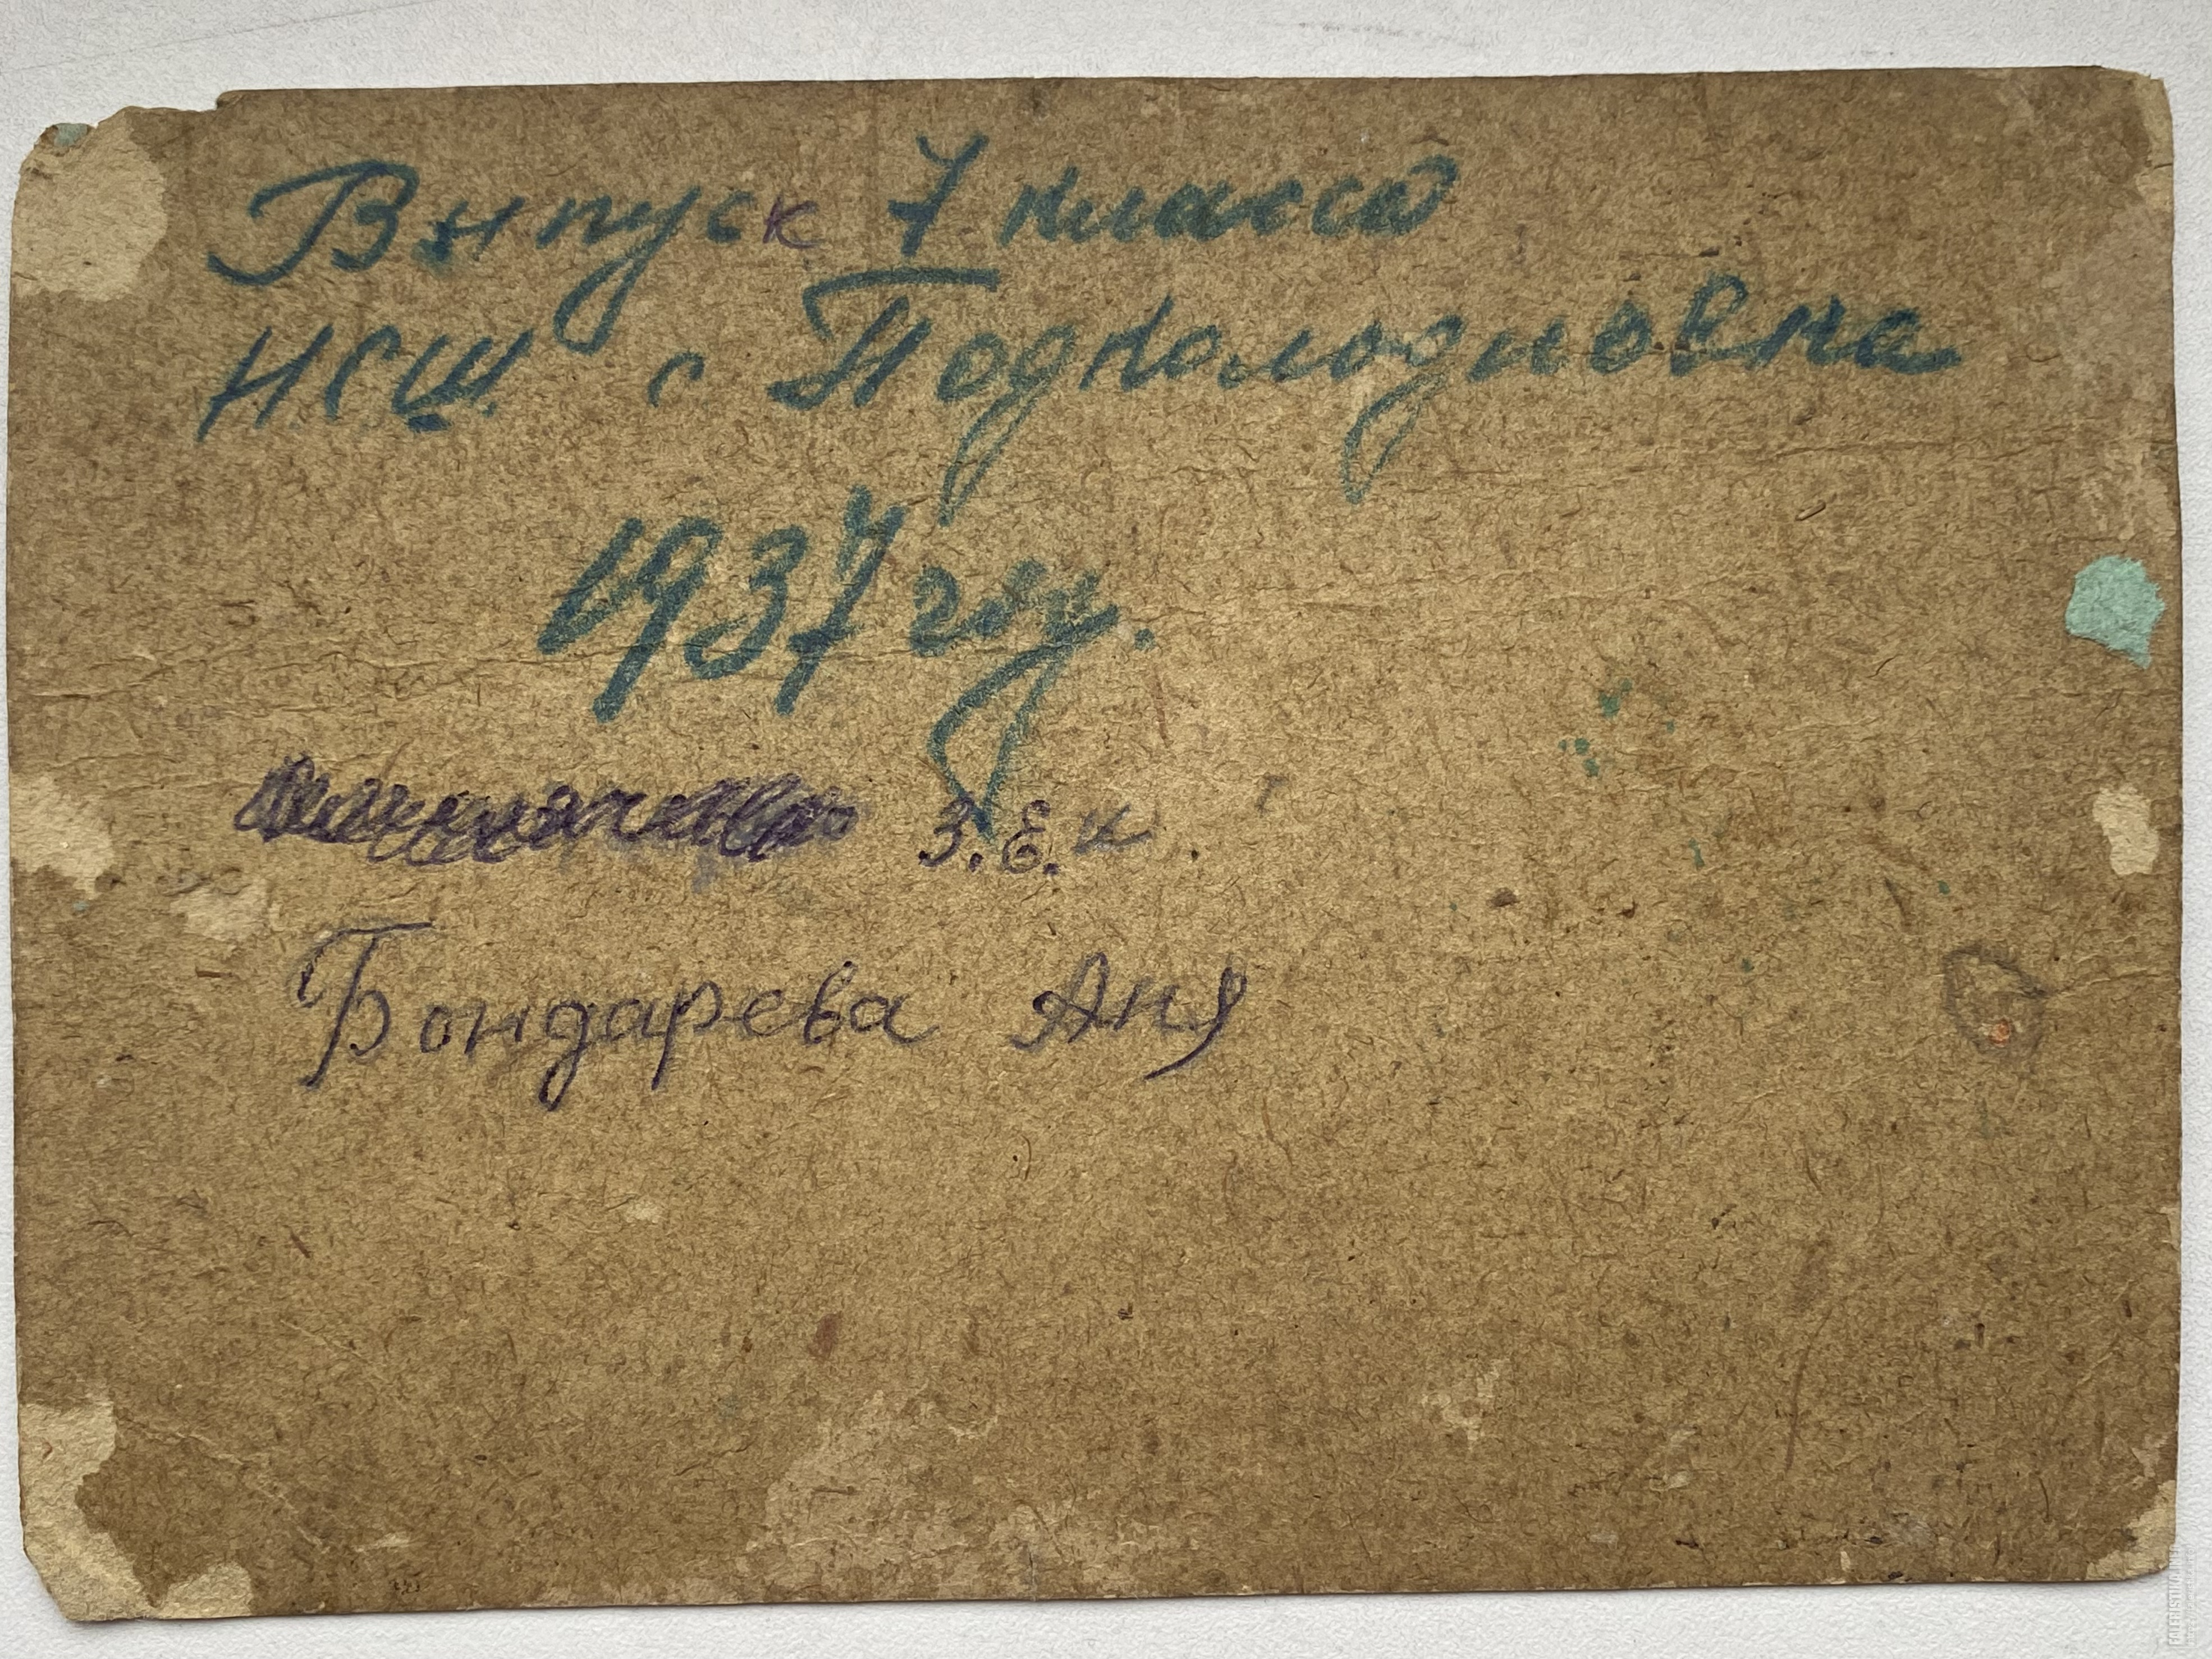 Выпуск 7 класса
НСШ с Подколодновка
1937 год.
З.Е.К.
Бондарева Аня